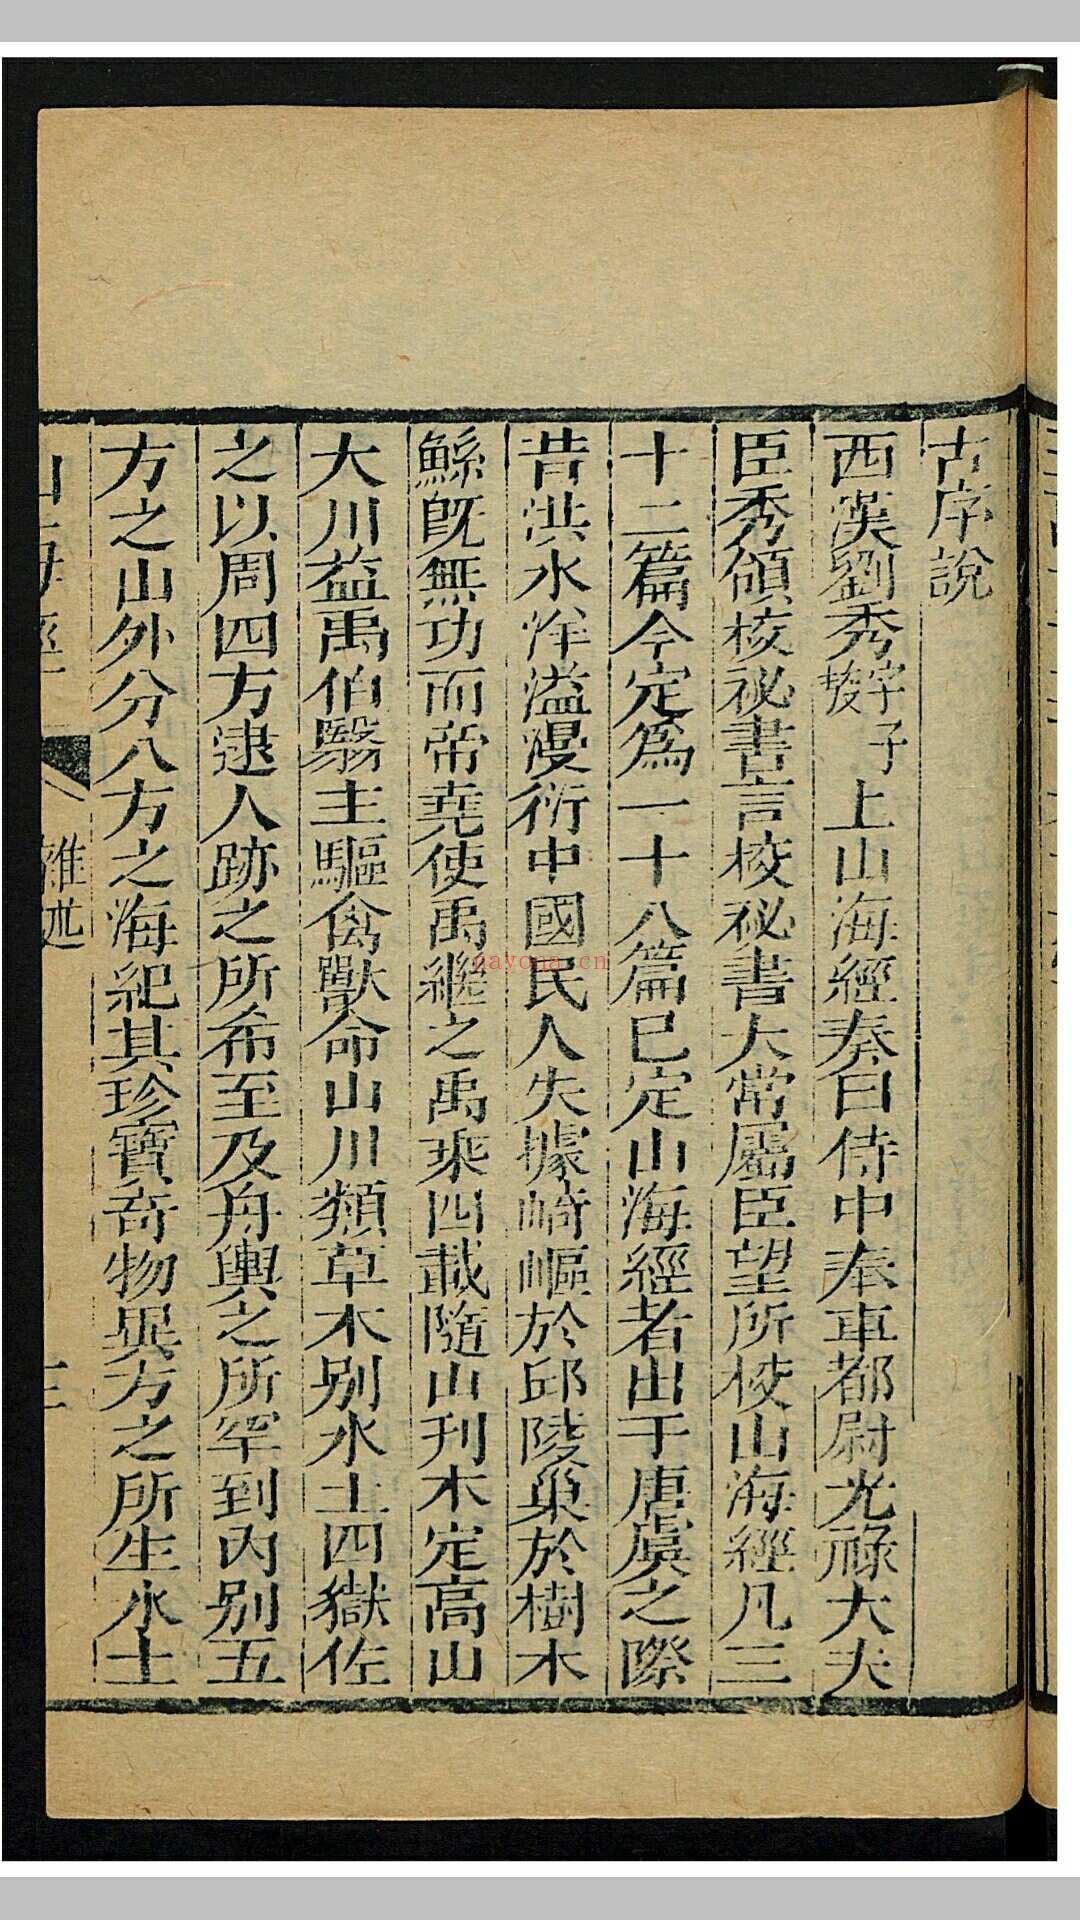 古序說
西漢劉秀字子
駿上山海經奏曰侍中奉車都尉光祿大夫
臣秀領校祕書言校祕書大常屬臣望所校山海經凡三
十二篇今定爲一十八篇巳定山海經者出于唐虞之際
昔洪水洋溢漫衍中國民人失據崎嶇於邱陵巢於樹木
鯀旣無功而帝堯使禹繼之禹乘四載隨山刋木定高山
大川益禹伯翳主驅禽獸命山川類草木别水土四嶽佐
之以周四方逮人跡之所希至及舟輿之所罕到內别五
方之山外分八方之海紀其珍寶奇物異方之所生水土
山海經
雜述
三
nayona.cn